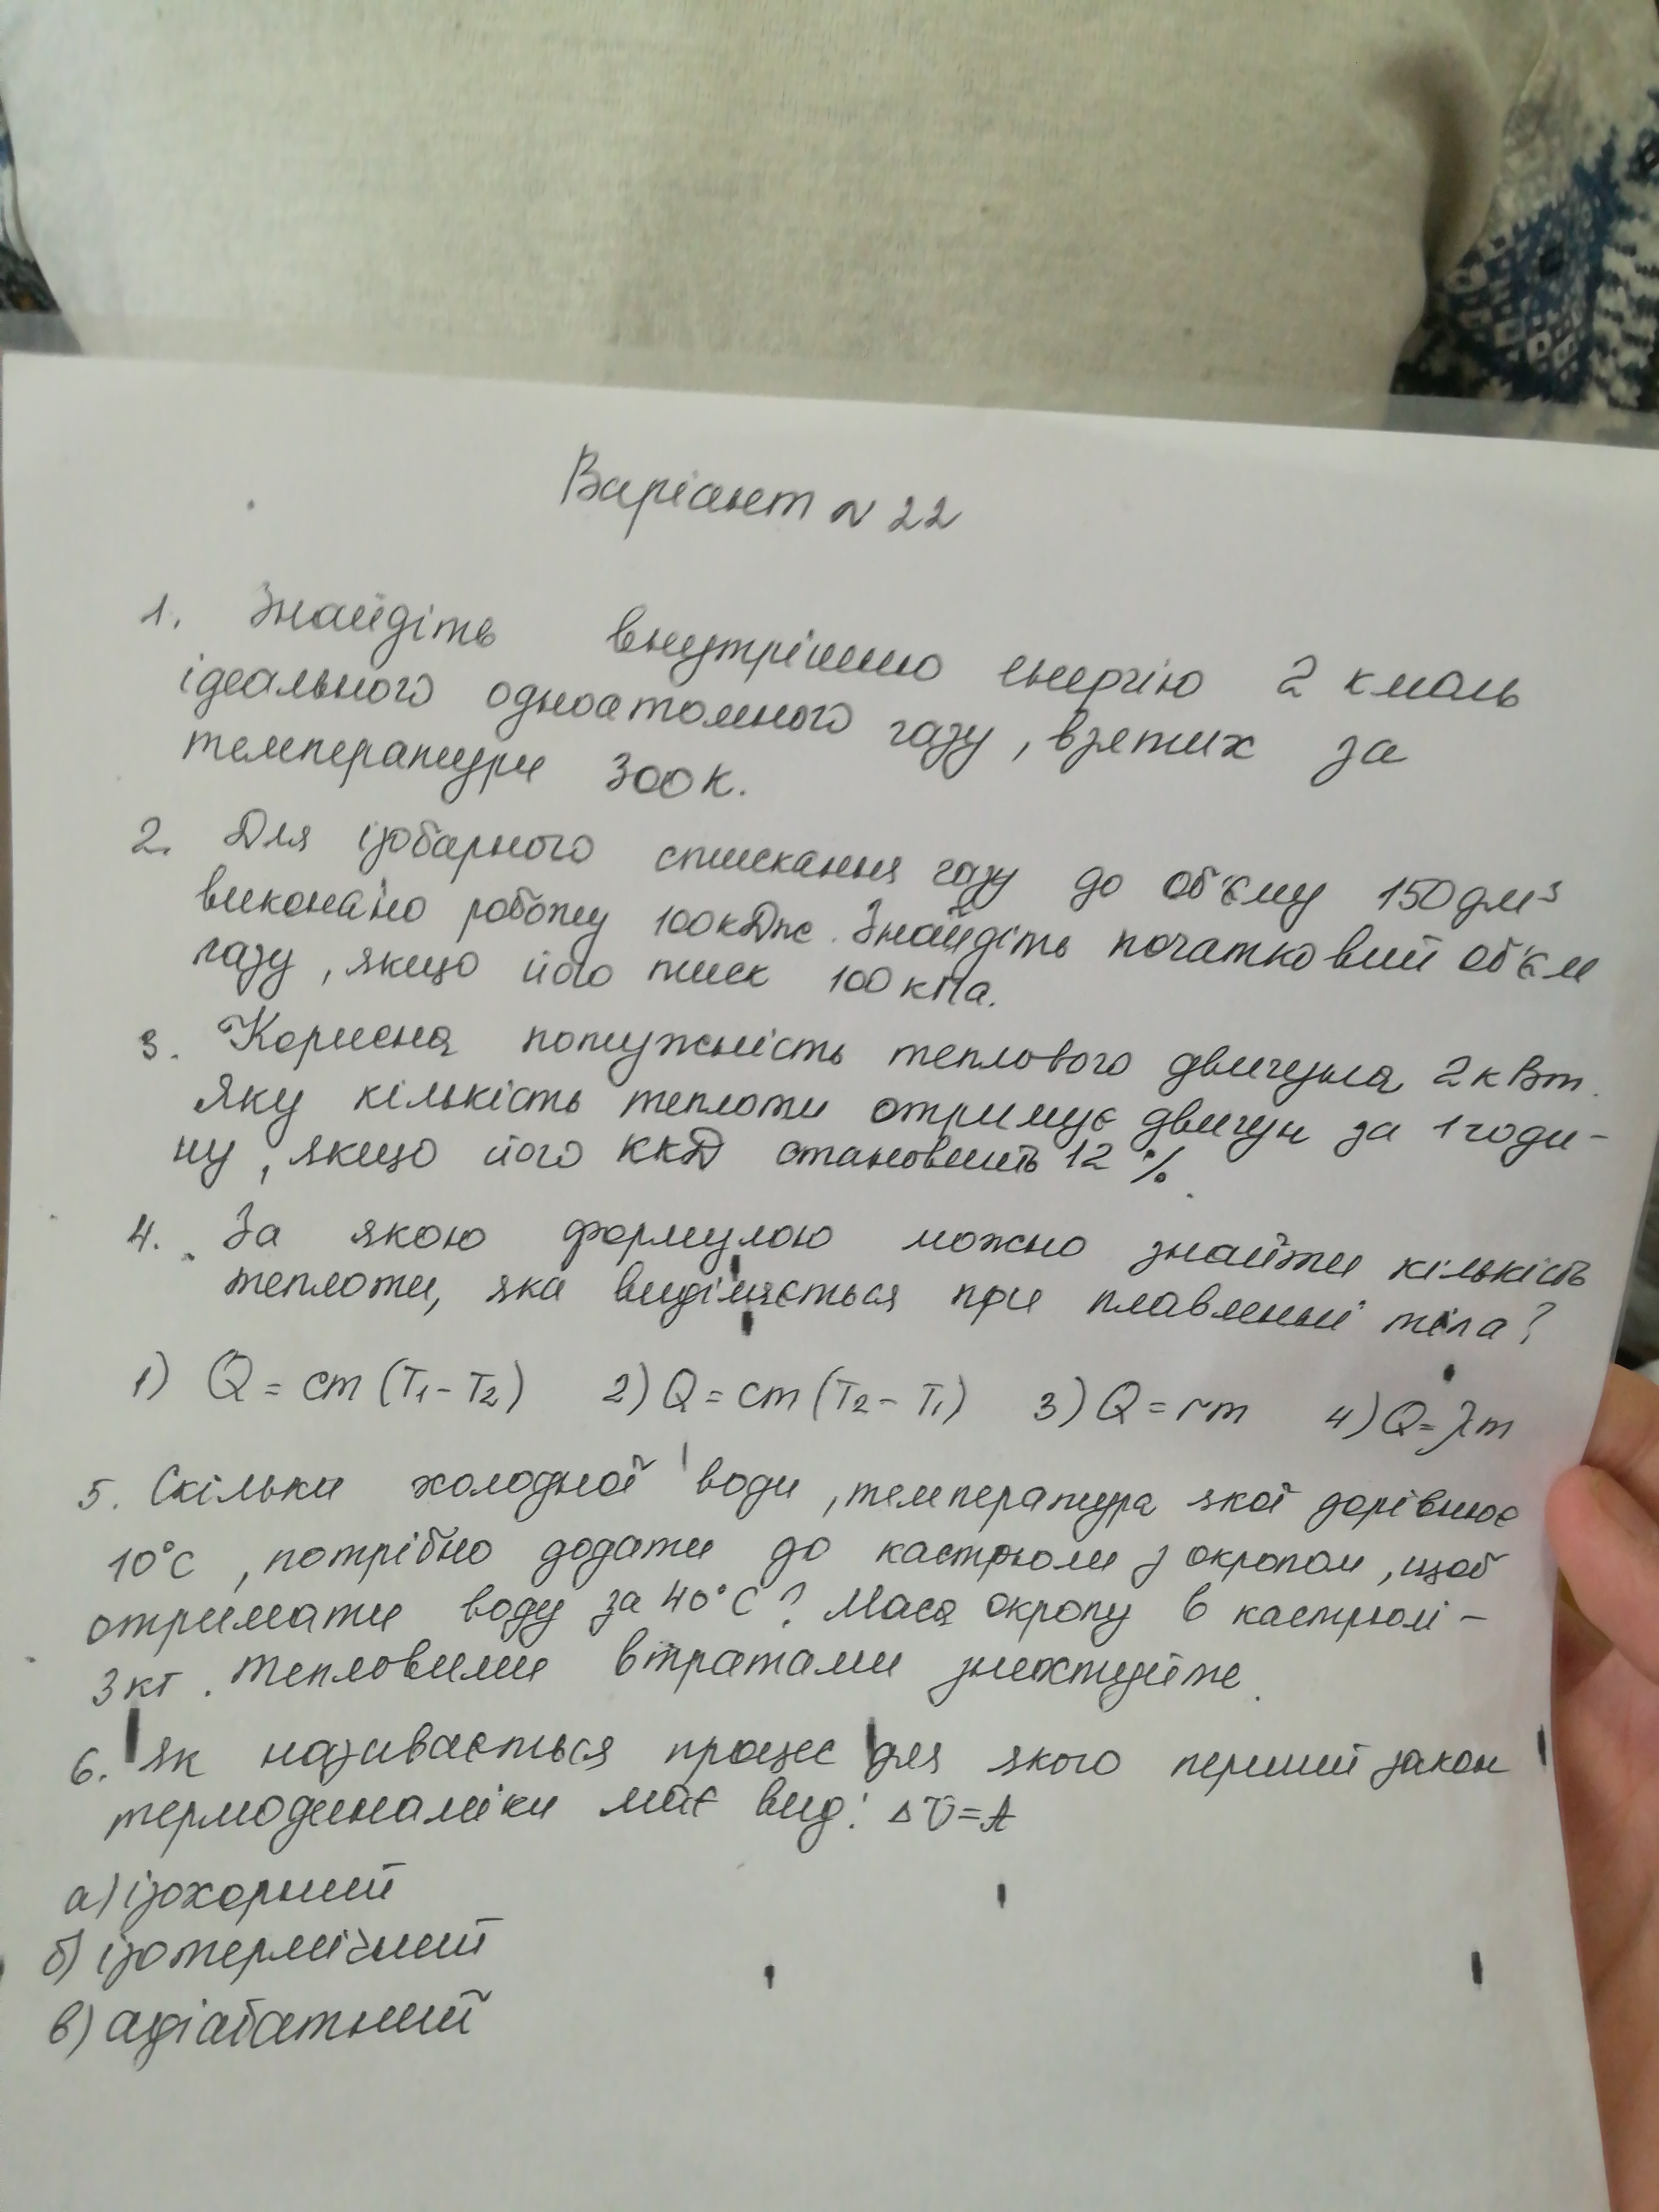 Варіант № 22
1. Знайдіть внутрішню енергію 2 кмоль
ідеального одноатомного газу, взятих за
температури 300 К.
2. Для ізобарного стискання газу до об'єму 150 дм³
виконано роботу 100 кДж. Знайдіть початковий об'єм
газу, якщо його тиск 100 кПа.
3. Корисна потужність теплового двигуна 2 кВт.
Яку кількість теплоти отримує двигун за 1 годи-
ну, якщо його ККД становить 12 %.
4. За якою формулою можно знайти кількість
теплоти, яка виділяється при плавленні тіла?
1) Q = cm (T₁ - T₂) 2) Q = cm (T₂ - T₁) 3) Q = rm 4) Q = λm
5. Скільки холодної води, температура якої дорівнює
10°C, потрібно додати до каструли з окропом, щоб
отримати воду за 40°C? Маса окропу в каструлі -
3 кг. Тепловими втратами знехтуйте.
6. Як називається процес для якого перший закон
термодинаміки має вид: ΔU = A
а) ізохорний
б) ізотермічний
в) адіабатний